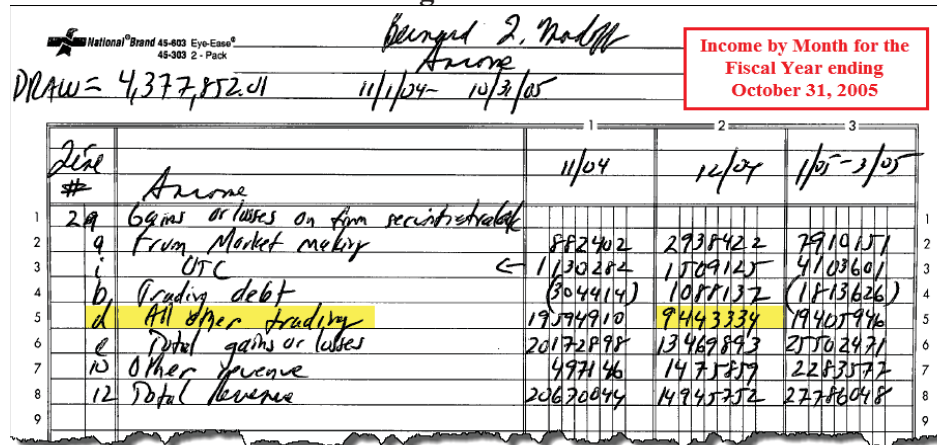 National® Brand 45-603 Eye-Ease®
45-303 2 - Pack
Bernard L. Madoff
Income
11/1/04 - 10/31/05
DRAW = 4,377,852.01
Income by Month for the
Fiscal Year ending
October 31, 2005
1 2 3
Line # Income 11/04 12/04 1/05 - 3/05
1 2a Gains or losses on firm securities 1
2 a From Market making 882402 2938422 7910151 2
3 i OTC ← 1130282 1509125 4103601 3
4 b Trading debt (304414) 1088137 (1813626) 4
5 d All other trading 19594910 9443334 19405946 5
6 e Total gains or losses 20172898 13469893 25502471 6
7 10 Other revenue 497146 1475859 2283577 7
8 12 Total Revenue 20670044 14945752 27786048 8
9 9